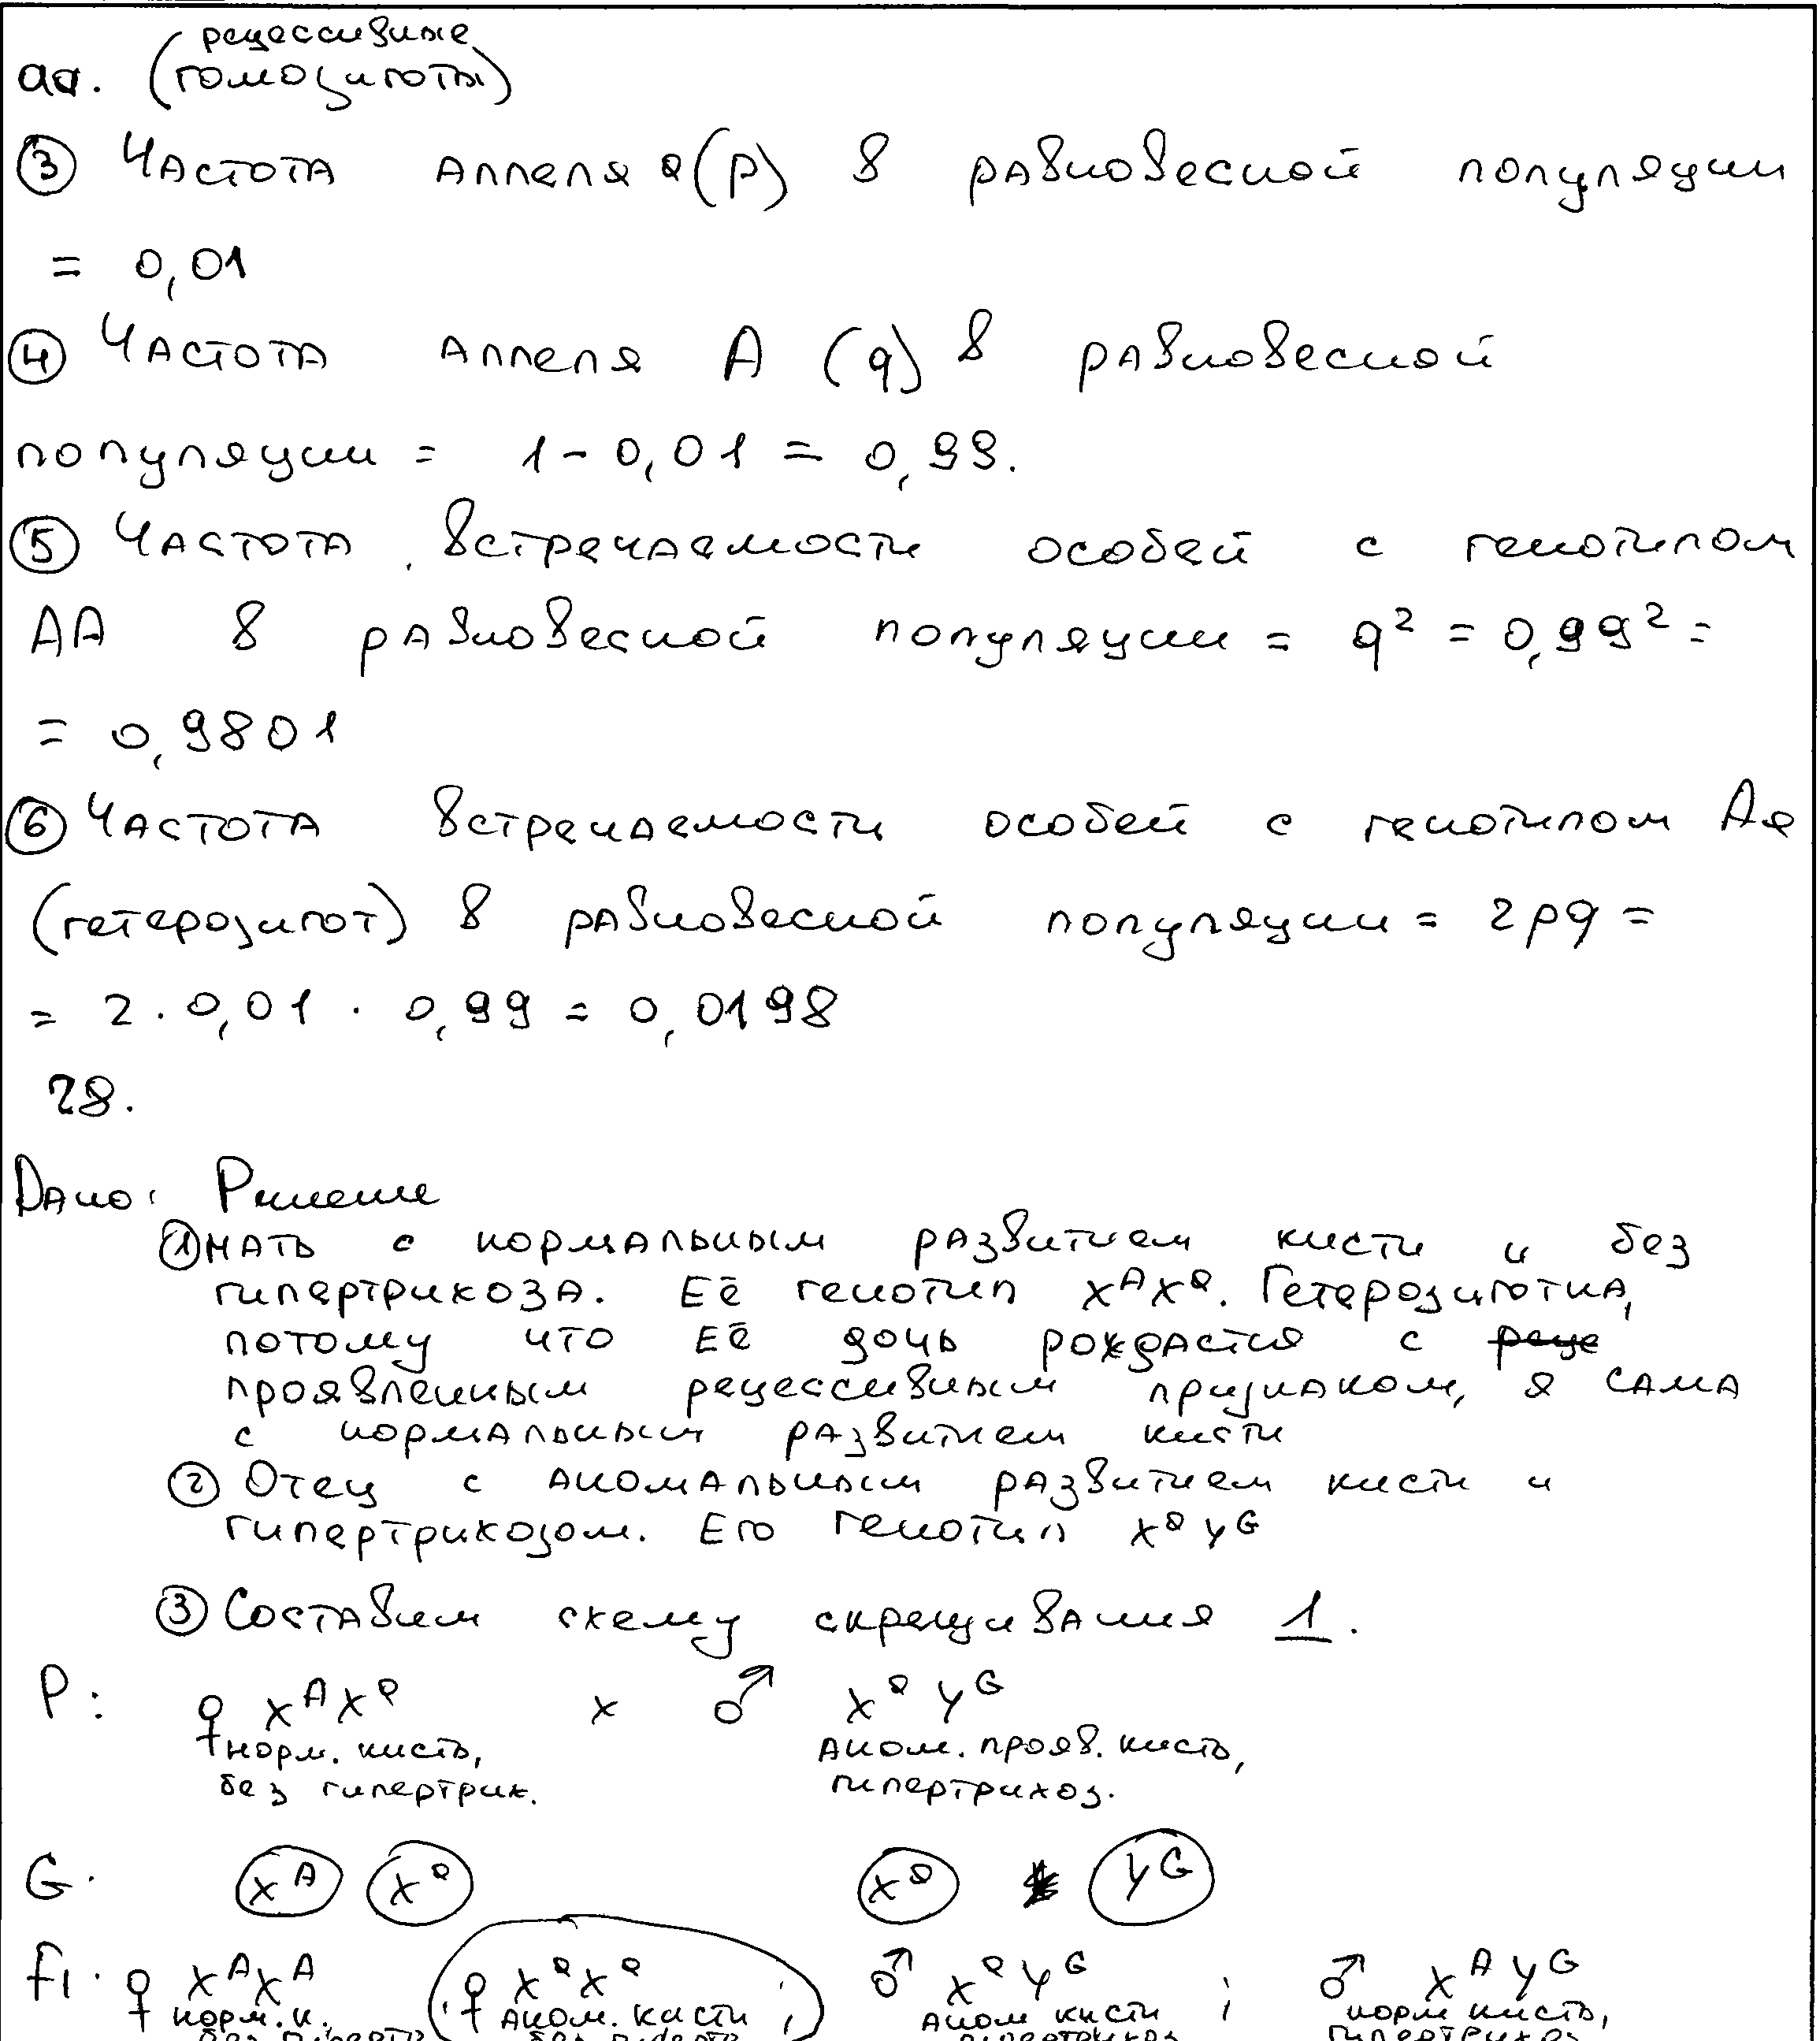 аа. (рецессивные
гомозиготы)
③ Частота аллеля а(p) в равновесной популяции
= 0,01
④ Частота аллеля А (q) в равновесной
популяции = 1 - 0,01 = 0,99.
⑤ Частота встречаемости особей с генотипом
АА в равновесной популяции = q² = 0,99² =
= 0,9801
⑥ Частота встречаемости особей с генотипом Аа
(гетерозигот) в равновесной популяции = 2pq =
= 2 · 0,01 · 0,99 = 0,0198
28.
Дано: Решение
① Мать с нормальным развитием кисти и без
гипертрихоза. Её генотип XᴬXᵃ. Гетерозиготна,
потому что её дочь рождается с реце
проявленным рецессивным признаком, а сама
с нормальным развитием кисти
② Отец с аномальным развитием кисти и
гипертрихозом. Его генотип XᵃYᴳ
③ Составим схему скрещивания 1.
P: ♀ XᴬXᵃ x ♂ XᵃYᴳ
норм. кисть, аном. прояв. кисть,
без гипертрих. гипертрихоз.
G. Xᴬ Xᵃ Xᵃ Yᴳ
F1. ♀ XᴬXᴬ ; ♀ XᵃXᵃ ; ♂ XᵃYᴳ ; ♂ XᴬYᴳ
норм. к. аном. кисти аном кисти норм кисть,
без гиперт. без гиперт. гипертрихоз гипертрихоз